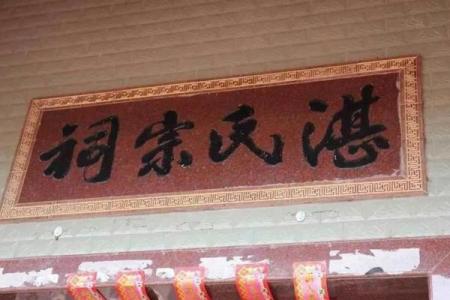 湛氏宗祠